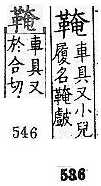 䩞
車具又小兒
履名䩞
536
䩞
車具又
於合切
546